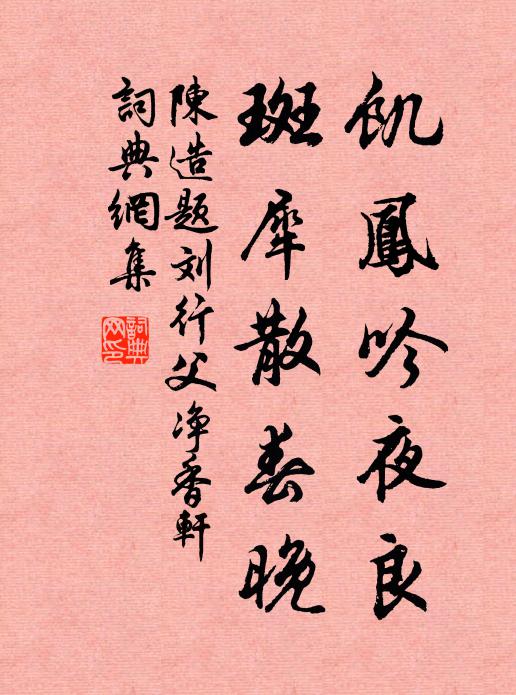 飢鳳吟夜良
斑犀散春晚
陳造題刘行父净香軒
詞典網集
詞典網印